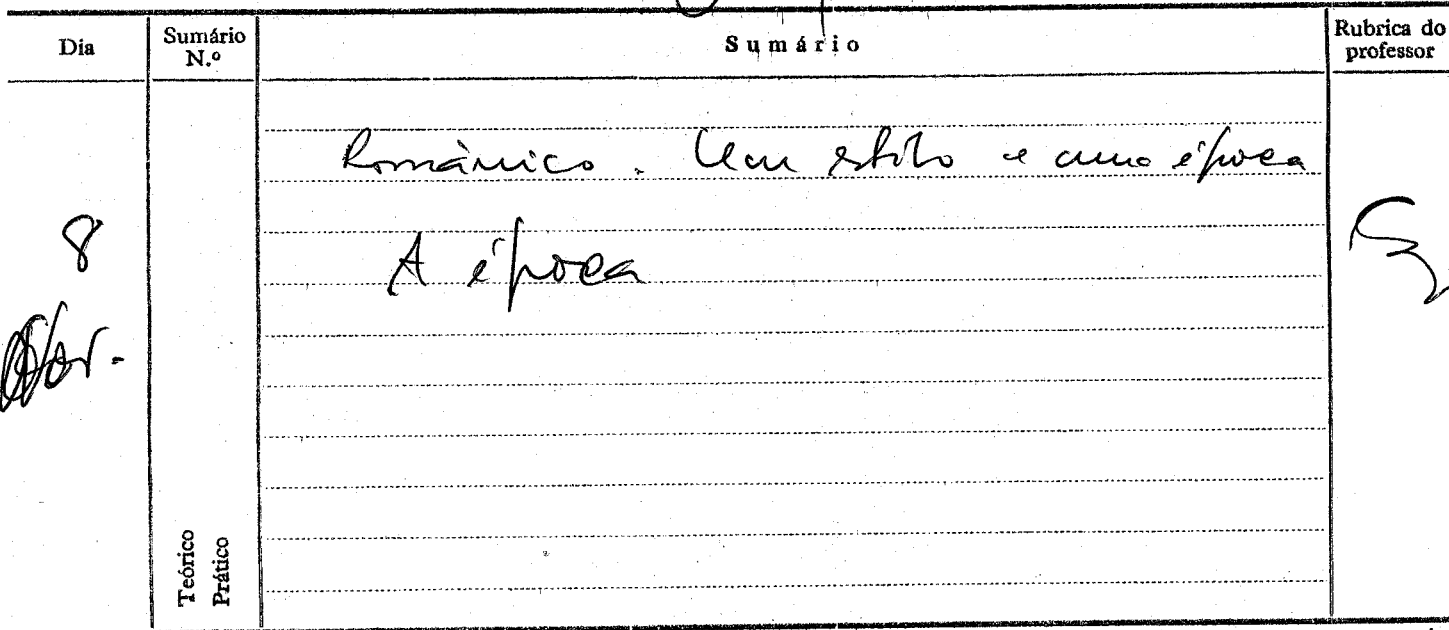 Dia
Sumário N.º
Sumário
Rubrica do professor
Românico. Um estilo e uma época
8
A época
Nov.
Teórico
Prático